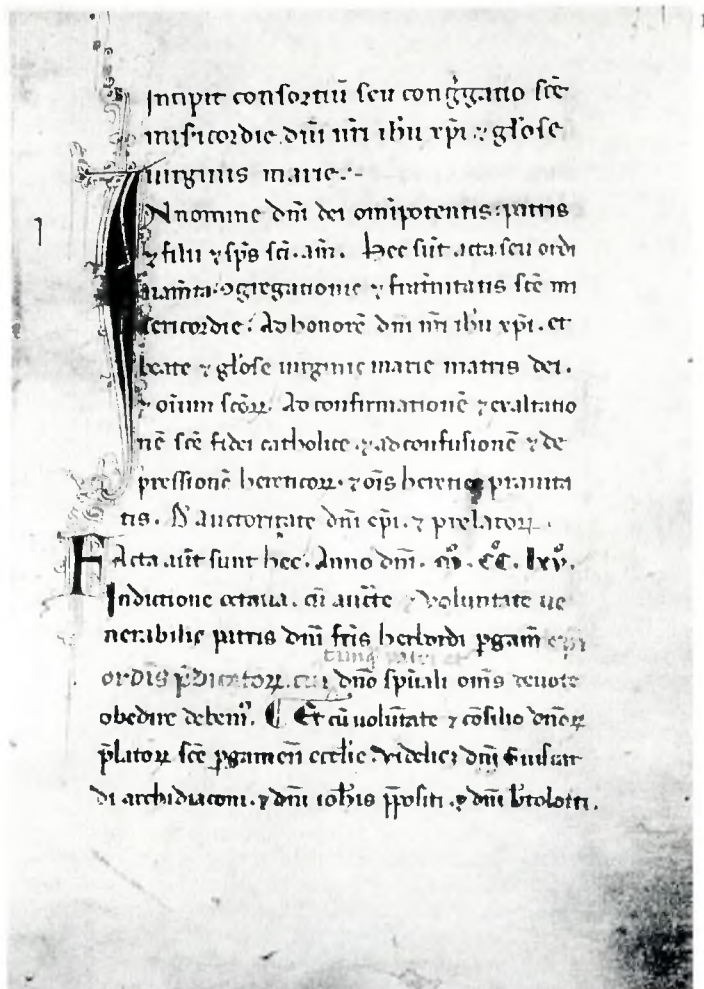 Incipit consortiū seu congͥgatio scē
misericordie dn̄i nr̄i ihū xp̄i ⁊ glōse
uirginis marie:-
IN nomine dn̄i dei omīpotentis: patris
⁊ filii ⁊ sp̄s sc̄i. am̄. Hec sūt acta seu ordi
nam̄ta ꝯgregationis ⁊ frat̄nitatis scē mi
sericordie. Ad honorē dn̄i nr̄i ihū xp̄i. et
beate ⁊ glōse uirginis marie matris dei.
⁊ oīum scōꝝ. Ad confirmationē ⁊ exaltatio
nē scē fidei catholice. ⁊ ad confusionē ⁊ de
pressionē hereticoꝝ. ⁊ oīs heretice prauita
tis. D' auctoritate dn̄i ep̄i. ⁊ prelatoꝝ.
FActa aūt sunt hec. Anno dn̄i. mͦ. CCͦ. lxvͦ.
Indictione octaua. cū auct̄e ⁊ voluntate ue
nerabilis patris dn̄i fr̄is herbordi ꝑgam̄ ep̄i
ordīs p̄dicatoꝝ. cui dn̄o sp̄uali om̄s deuote
obedire debem᷒. Et cū uolūtate ⁊ cōsilio dn̄oꝝ
p̄latoꝝ scē ꝑgamen̄ eccl̄ie. videlicꝫ dn̄i Guiscar
di archidiaconi. ⁊ dn̄i ioh̄is p̄positi. ⁊ dn̄i b̄tolotti.